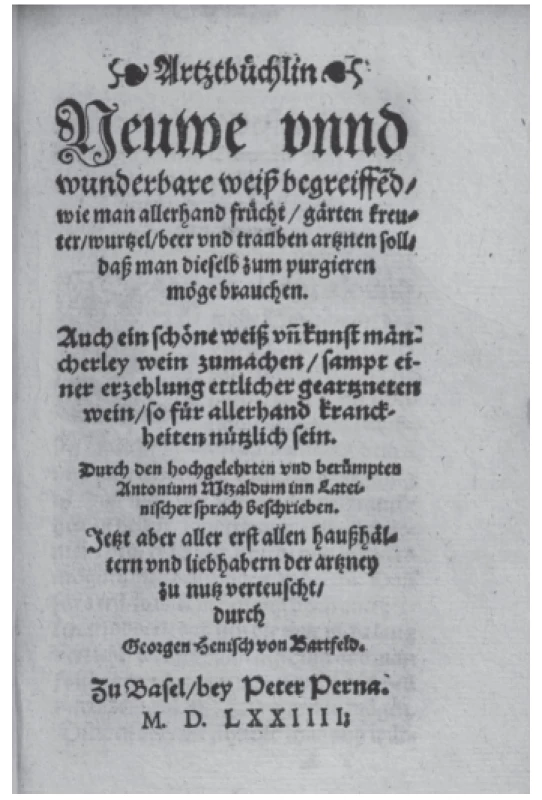 Artztbüchlin
Neuwe vnnd
wunderbare weiß begreiffẽd/
wie man allerhand frücht/ gärten kreu⸗
ter/wurtzel/beer vnd trauben artznen soll/
daß man dieselb zum purgieren
möge brauchen.
Auch ein schöne weiß vñ kunst män⸗
cherley wein zumachen/ sampt ei⸗
ner erzehlung ettlicher geartzneten
wein/so für allerhand kranck⸗
heiten nützlich sein.
Durch den hochgelehrten vnd berümpten
Antonium Mizaldum inn Latei⸗
nischer sprach beschrieben.
Jetzt aber aller erst allen haußhäl⸗
tern vnd liebhabern der artzney
zu nutz verteuscht/
durch
Georgen Henisch von Bartfeld.
Zu Basel/bey Peter Perna.
M. D. LXXIIII;